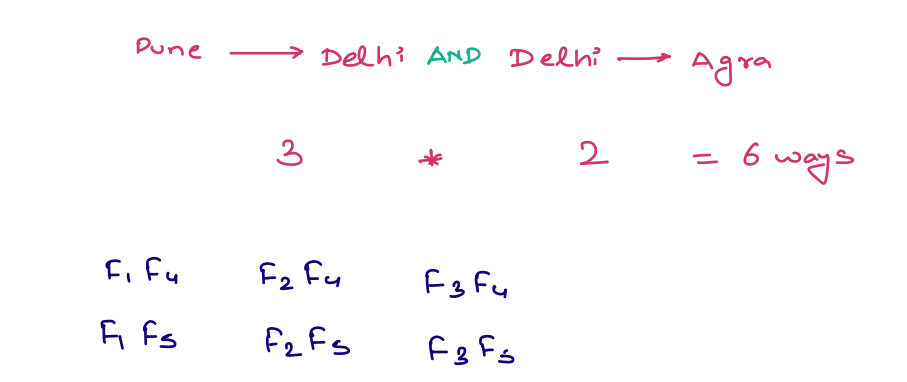 Pune → Delhi AND Delhi → Agra
3 * 2 = 6 ways
F₁ F₄ F₂ F₄ F₃ F₄
F₁ F₅ F₂ F₅ F₃ F₅